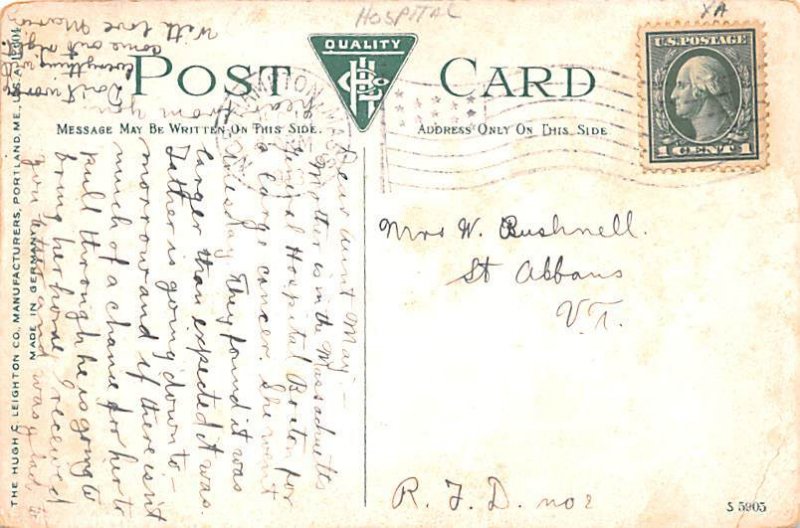 HOSPITAL
XA
POST CARD
QUALITY
MESSAGE MAY BE WRITTEN ON THIS SIDE.
ADDRESS ONLY ON THIS SIDE
U.S. POSTAGE
1 CENT 1
Dear Aunt May:—
Mother is in the Massachusetts
General Hospital Boston for
a large cancer. She went
Tuesday They found it was
larger than expected it was
Father is going down to-
morrow and if there isn't
much of a chance for her to
pull through he is going to
bring her home, I received
your letter and was glad to
hear
from you
Don't worry
everything will
come out alright
With love
Mrs W. Bushnell.
St Albans
VT.
R. F. D. no 2
S 5905
THE HUGH C. LEIGHTON CO., MANUFACTURERS, PORTLAND, ME., U.S.A.
MADE IN GERMANY